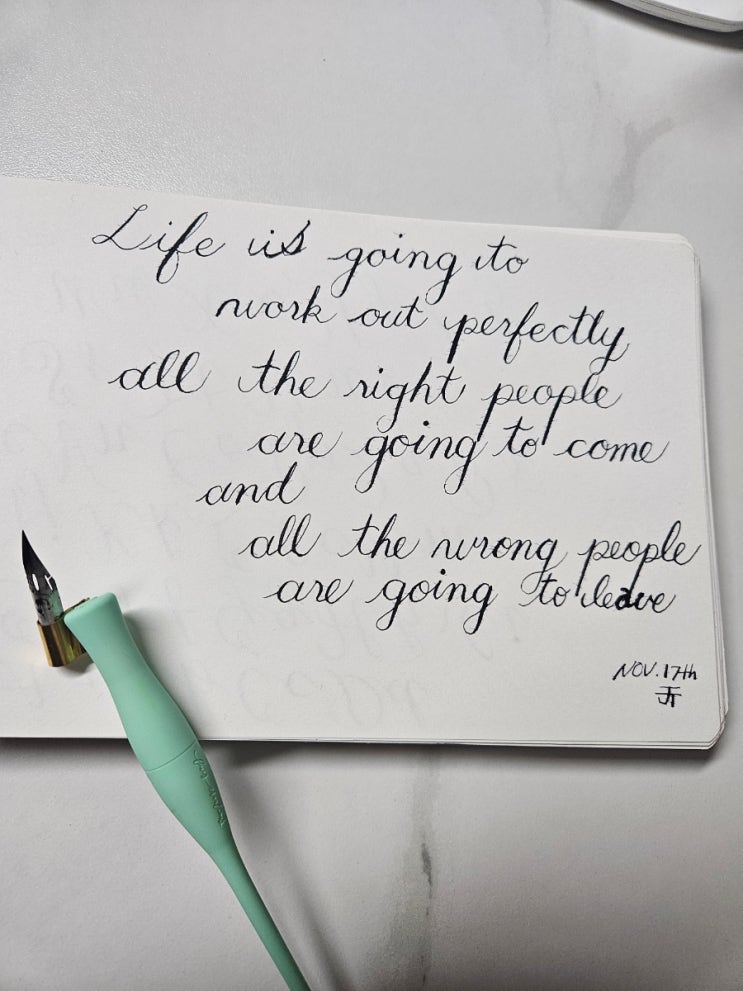 Life is going to
work out perfectly
all the right people
are going to come
and
all the wrong people
are going to leave
NOV. 17th